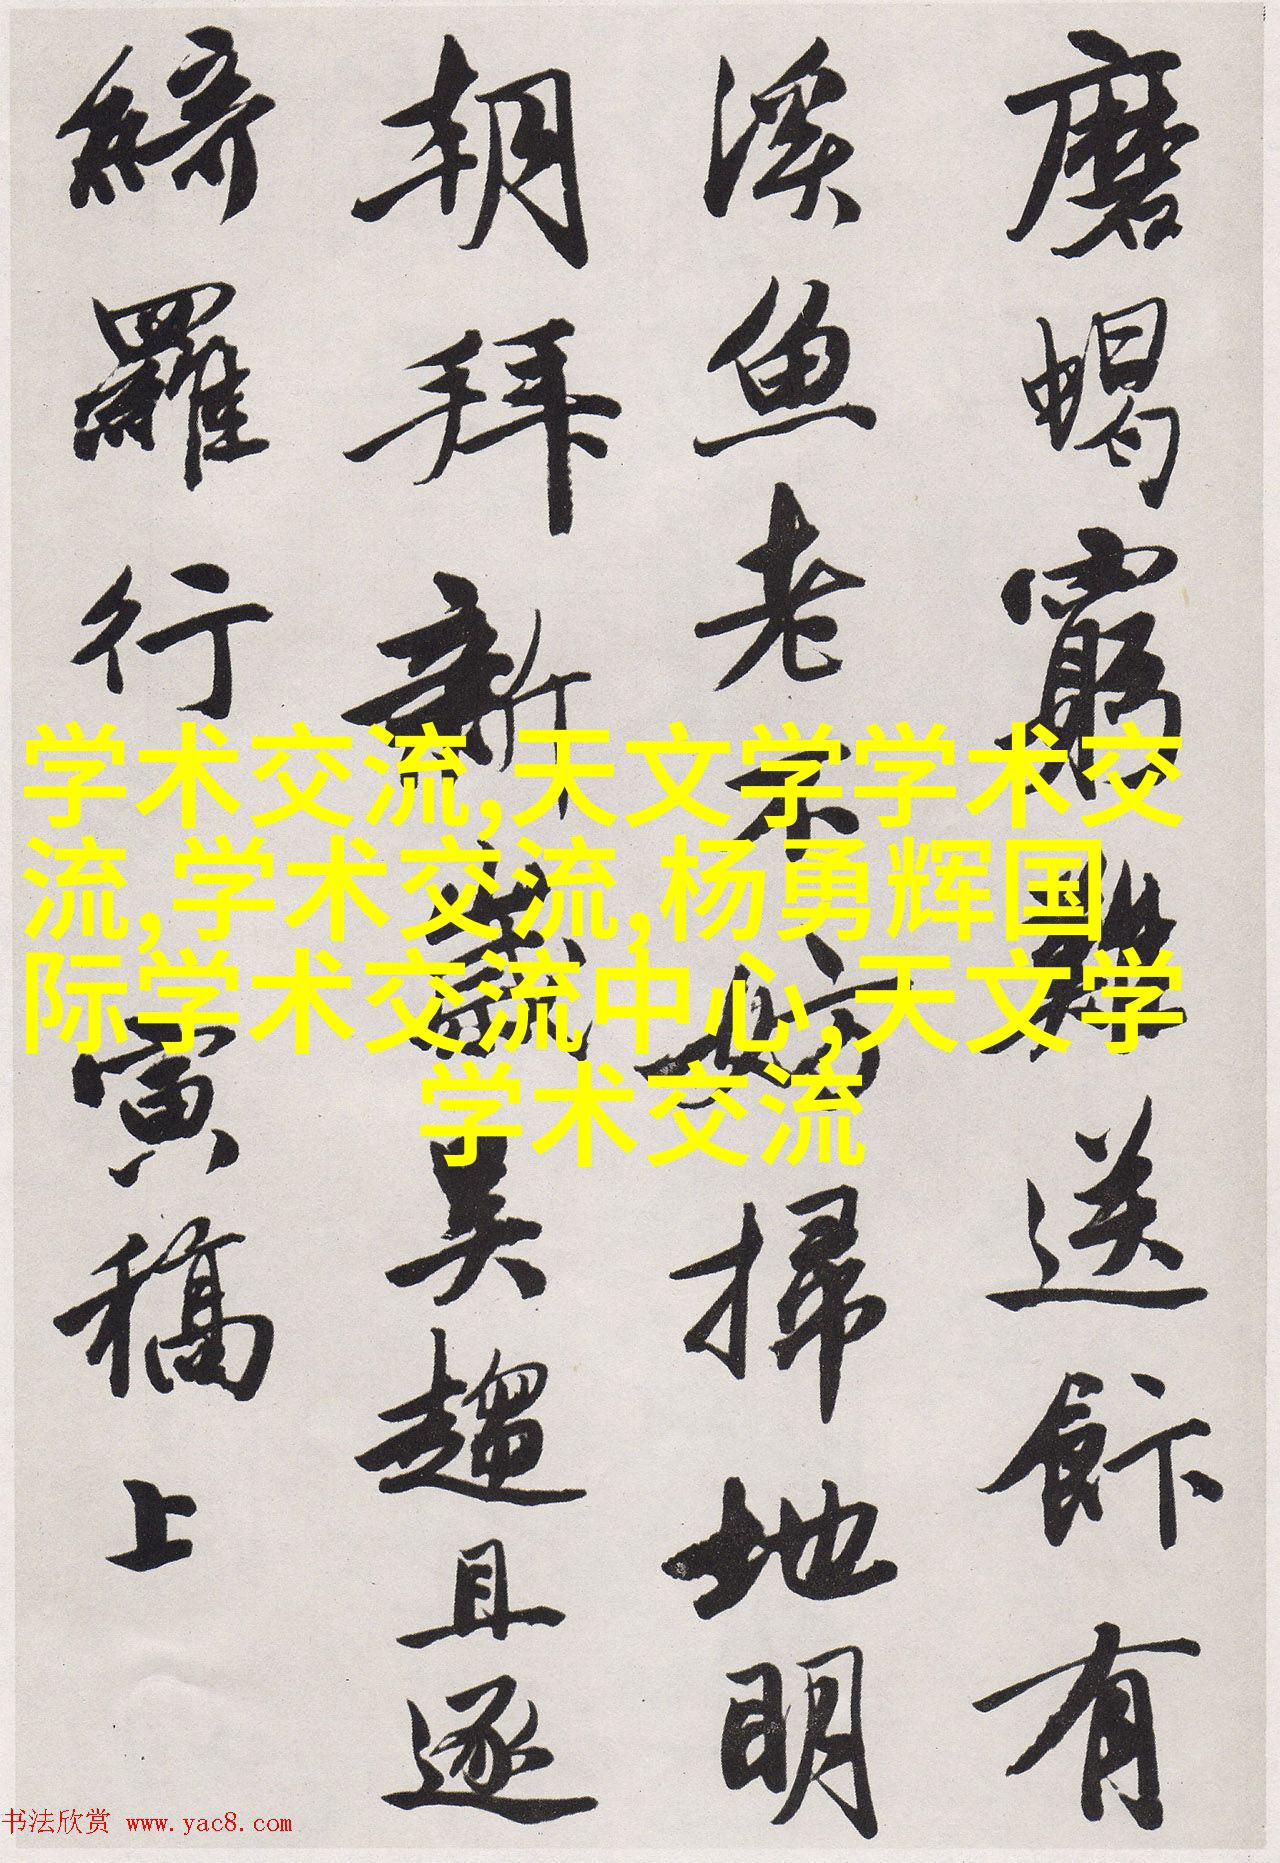 磨蝎窮難送飰有
溪鱼老不妨掃地明
朝拜新歲吴趨且逐
綺羅行
寅稿上
学术交流,天文学学术交
流,学术交流,杨勇辉国
际学术交流中心,天文学
学术交流
书法欣赏 www.yac8.com